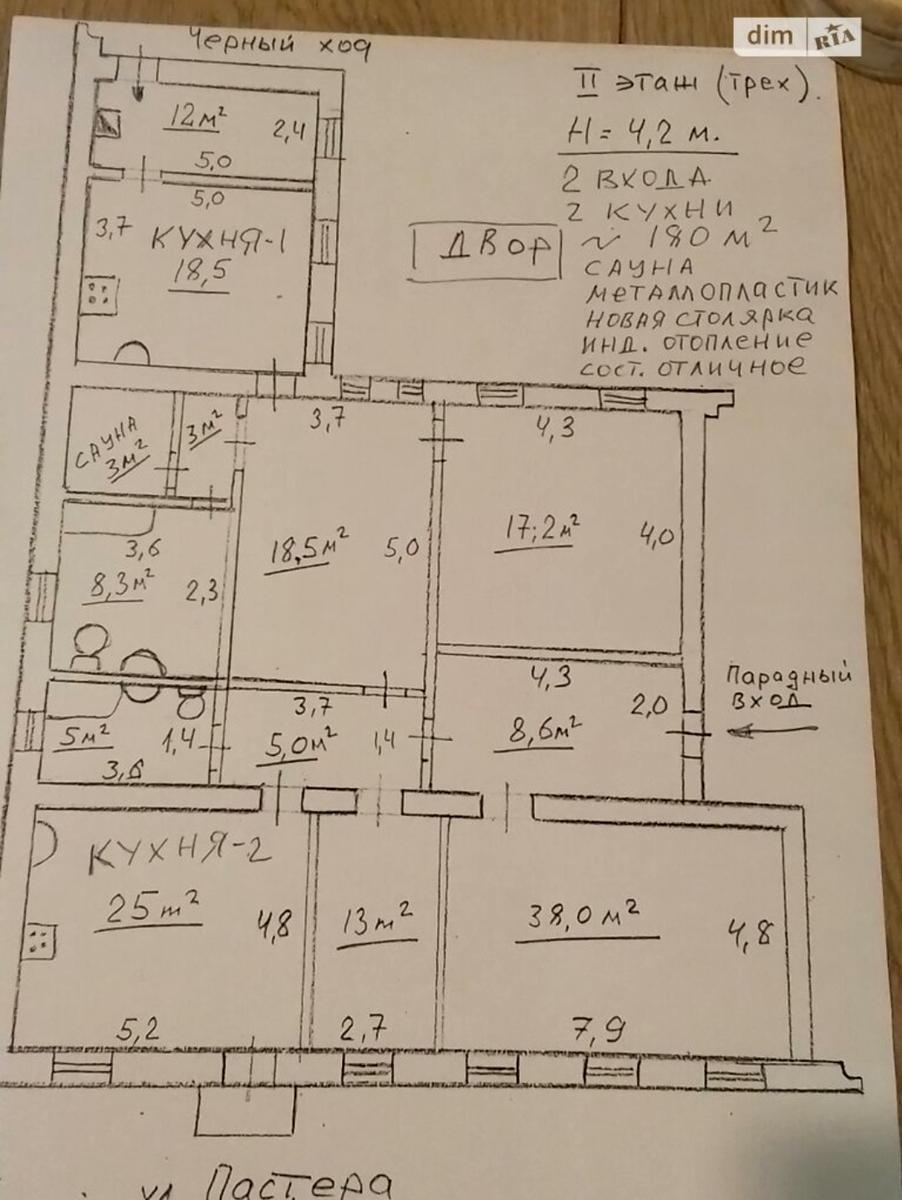 dim RIA
Черный ход
II этаж (трех).
H = 4,2 м.
2 ВХОДА
2 КУХНИ
~ 180 м²
САУНА
МЕТАЛЛОПЛАСТИК
НОВАЯ СТОЛЯРКА
ИНД. ОТОПЛЕНИЕ
СОСТ. ОТЛИЧНОЕ
ДВОР
12 м²
2,4
5,0
5,0
3,7
КУХНЯ-1
18,5
САУНА
3 м²
3 м²
3,7
18,5 м²
5,0
4,3
17,2 м²
4,0
3,6
8,3 м²
2,3
4,3
2,0
8,6 м²
Парадный
ВХОД
3,7
5,0 м²
1,4
5 м²
1,4
3,6
КУХНЯ-2
25 m²
4,8
5,2
13 m²
2,7
38,0 м²
4,8
7,9
ул. Пастера